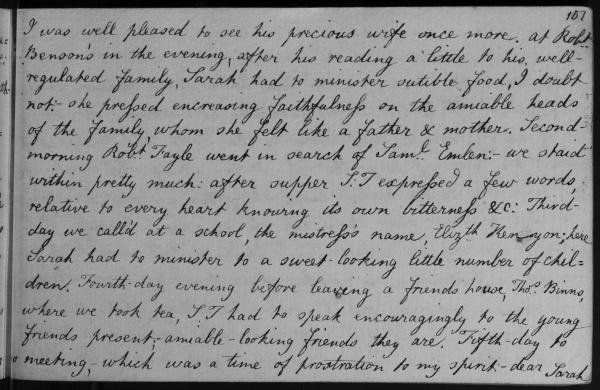 157
I was well pleased to see his precious wife once more. at Robt.
Benson's in the evening, after his reading a little to his well-
regulated family, Sarah had to minister sutible food, I doubt
not:- she pressed encreasing faithfulness on the amiable heads
of the family, whom she felt like a father & mother. Second-
morning Robt. Fayle went in search of Saml. Emlen:- we staid
within pretty much: after supper S:T expressed a few words
relative to every heart knowing its own bitterness &c: Third-
day we call'd at a school, the mistress's name, Elizth. Kenyon; here
Sarah had to minister to a sweet-looking little number of chil=
dren. Fourth-day evening before leaving a friends house, Thos. Binns,
where we took tea, S.T had to speak encouragingly to the young
friends present;- amiable-looking friends they are. Fifth-day to
meeting, which was a time of prostration to my spirit:- dear Sarah